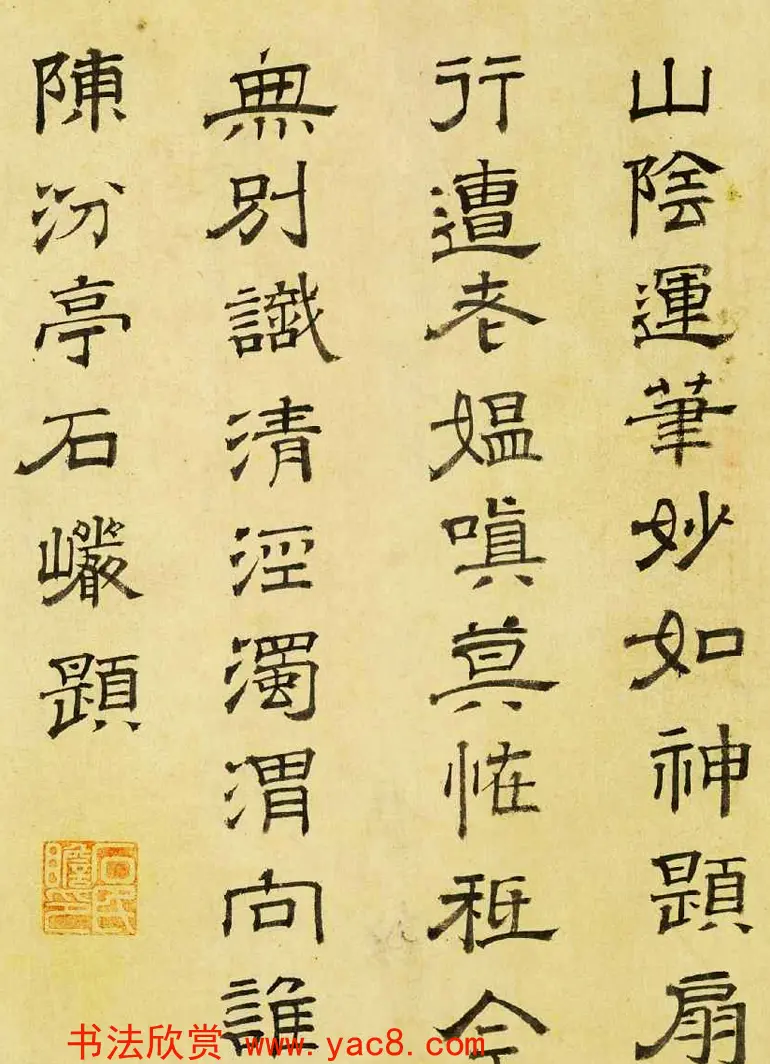 山陰運筆妙如神題扇
行遭老媼嗔莫恠秪今
無別識清涇濁渭向誰
陳汾亭石巖題
书法欣赏 www.yac8.com